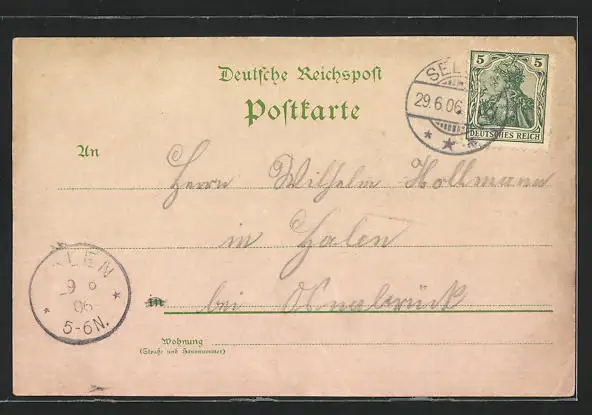 Deutsche Reichspost
Postkarte
SEL
29.6.06.
5 5
DEUTSCHES REICH
An
Herrn Wilhelm Hollmann
in Halen
in bei Osnabrück
LEN
9 6
06
5-6N.
Wohnung
(Straße und Hausnummer)